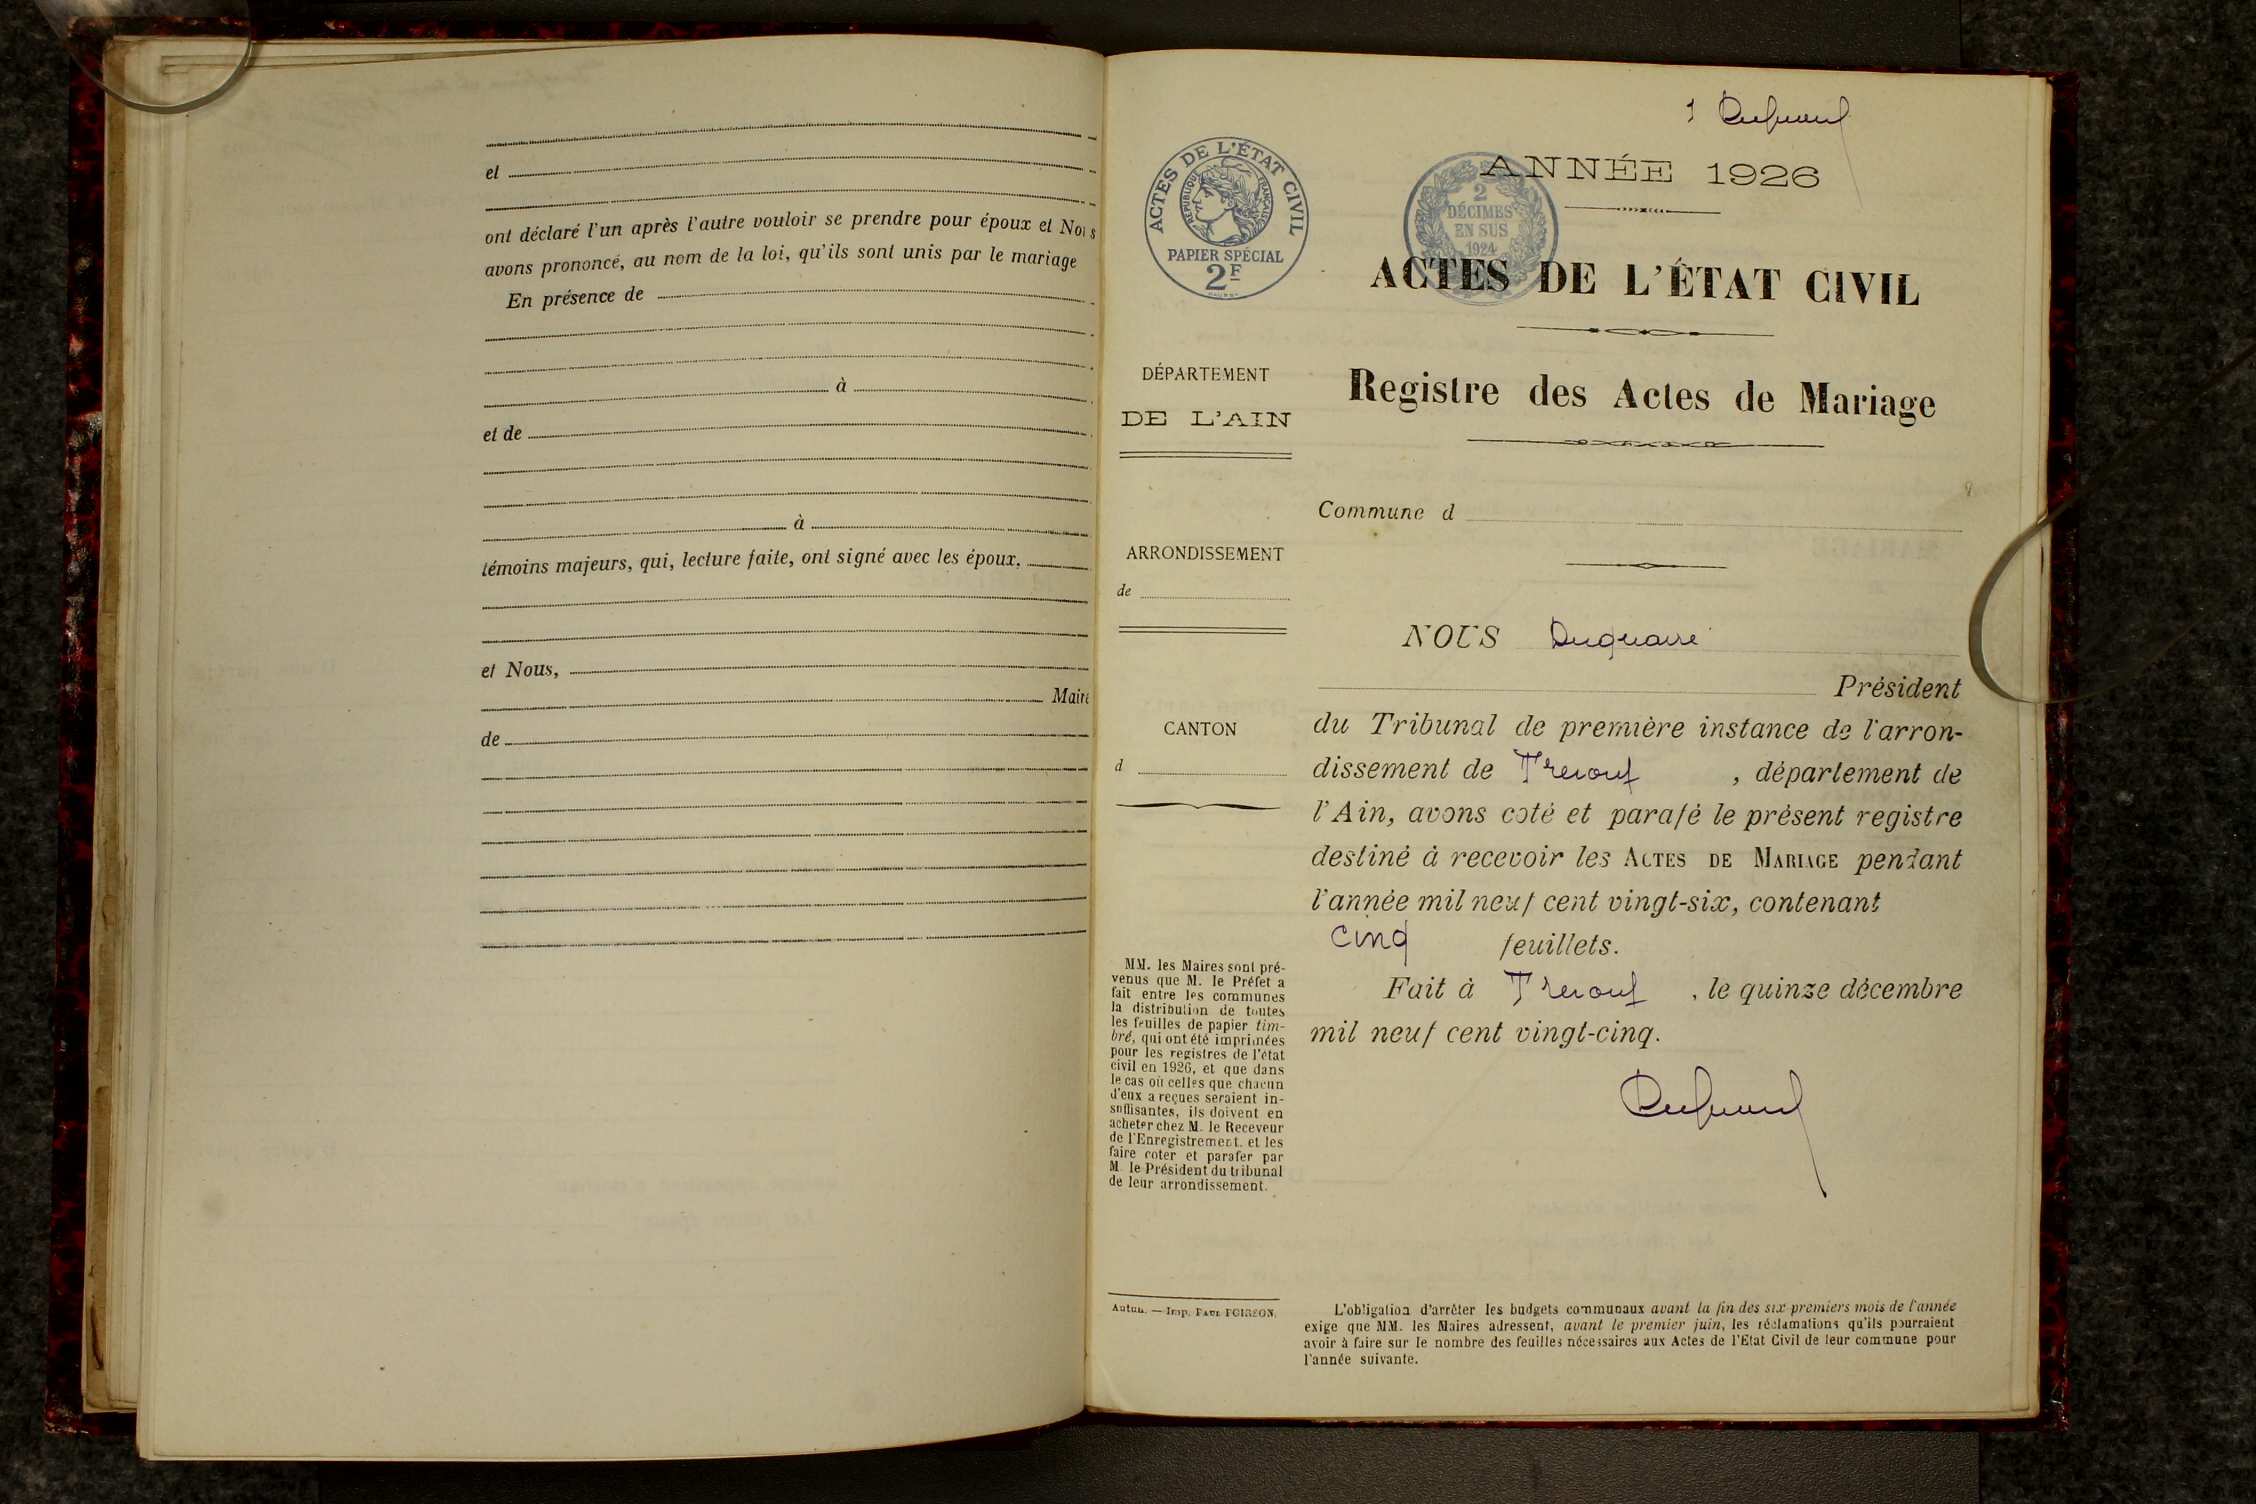 et
ont déclaré l'un après l'autre vouloir se prendre pour époux et Nous
avons prononcé, au nom de la loi, qu'ils sont unis par le mariage
En présence de
à
et de
à
témoins majeurs, qui, lecture faite, ont signé avec les époux,
et Nous,
Maire
de
1
ANNÉE 1926
ACTES DE L'ÉTAT CIVIL
RÉPUBLIQUE FRANÇAISE
PAPIER SPÉCIAL
2F
2
DÉCIMES
EN SUS
1924
ACTES DE L'ÉTAT CIVIL
Registre des Actes de Mariage
DÉPARTEMENT
DE L'AIN
ARRONDISSEMENT
de
CANTON
d
MM. les Maires sont pré-
venus que M. le Préfet a
fait entre les communes
la distribution de toutes
les feuilles de papier tim-
bré, qui ont été imprimées
pour les registres de l'état
civil en 1926, et que dans
le cas où celles que chacun
d'eux a reçues seraient in-
suffisantes, ils doivent en
acheter chez M. le Receveur
de l'Enregistrement, et les
faire coter et parafer par
M. le Président du tribunal
de leur arrondissement.
Autun. — Imp. PAUL POIRSON.
Commune d
NOUS Duquaire
Président
du Tribunal de première instance de l'arron-
dissement de Trevoux, département de
l'Ain, avons coté et parafé le présent registre
destiné à recevoir les ACTES DE MARIAGE pendant
l'année mil neuf cent vingt-six, contenant
cinq feuillets.
Fait à Trevoux, le quinze décembre
mil neuf cent vingt-cinq.
L'obligation d'arrêter les budgets communaux avant la fin des six premiers mois de l'année
exige que MM. les Maires adressent, avant le premier juin, les réclamations qu'ils pourraient
avoir à faire sur le nombre des feuilles nécessaires aux Actes de l'Etat Civil de leur commune pour
l'année suivante.